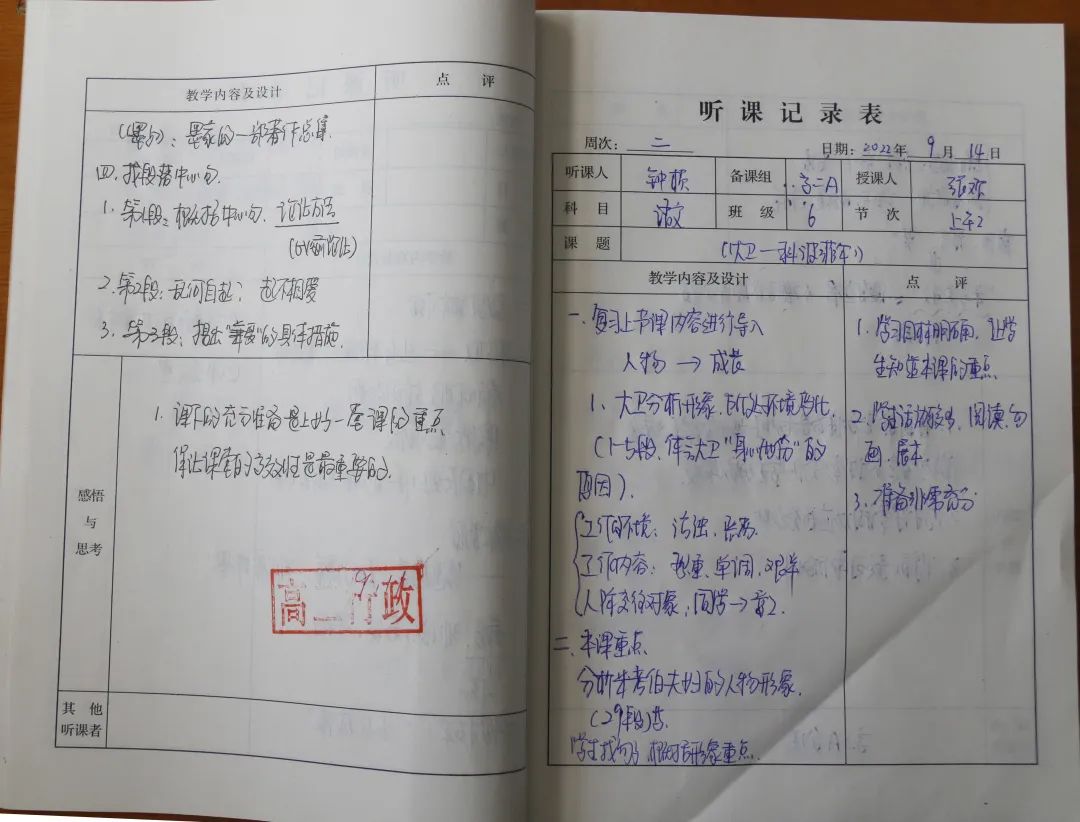 教学内容及设计 点 评
《墨子》：墨家的一部著作总集.
四. 找段落中心句.
1. 第1段：概括中心句. 论证方法
2. 第2段：乱何自起？起不相爱
3. 第三段：提出“兼爱”的具体措施.
感悟
与
思考
1. 课下的充分准备是上好一堂课的重点.
保证课堂的高效性是最重要的.
高二行政
其 他
听课者
听 课 记 录 表
周次： 二 日期：2022年 9 月 14 日
听课人 备课组 高二A 授课人
科 目 语文 班 级 6 节 次 上午2
课 题 《大卫·科波菲尔》
教学内容及设计 点 评
一. 复习上节课内容进行导入
人物 → 成长
1、大卫分析形象, 所处环境变化.
(1-5段, 体会大卫“身心俱疲”的
原因).
工作环境：污浊、恶劣.
工作内容：繁重、单调、艰辛
人际交往对象，同学→童工.
二、本课重点.
分析米考伯夫妇的人物形象.
学生找句子, 概括形象重点.
1. 学习目标明确, 让学
生知道本课的重点.
2. 学生活动较多, 阅读, 勾
画, 展示.
3. 准备非常充分